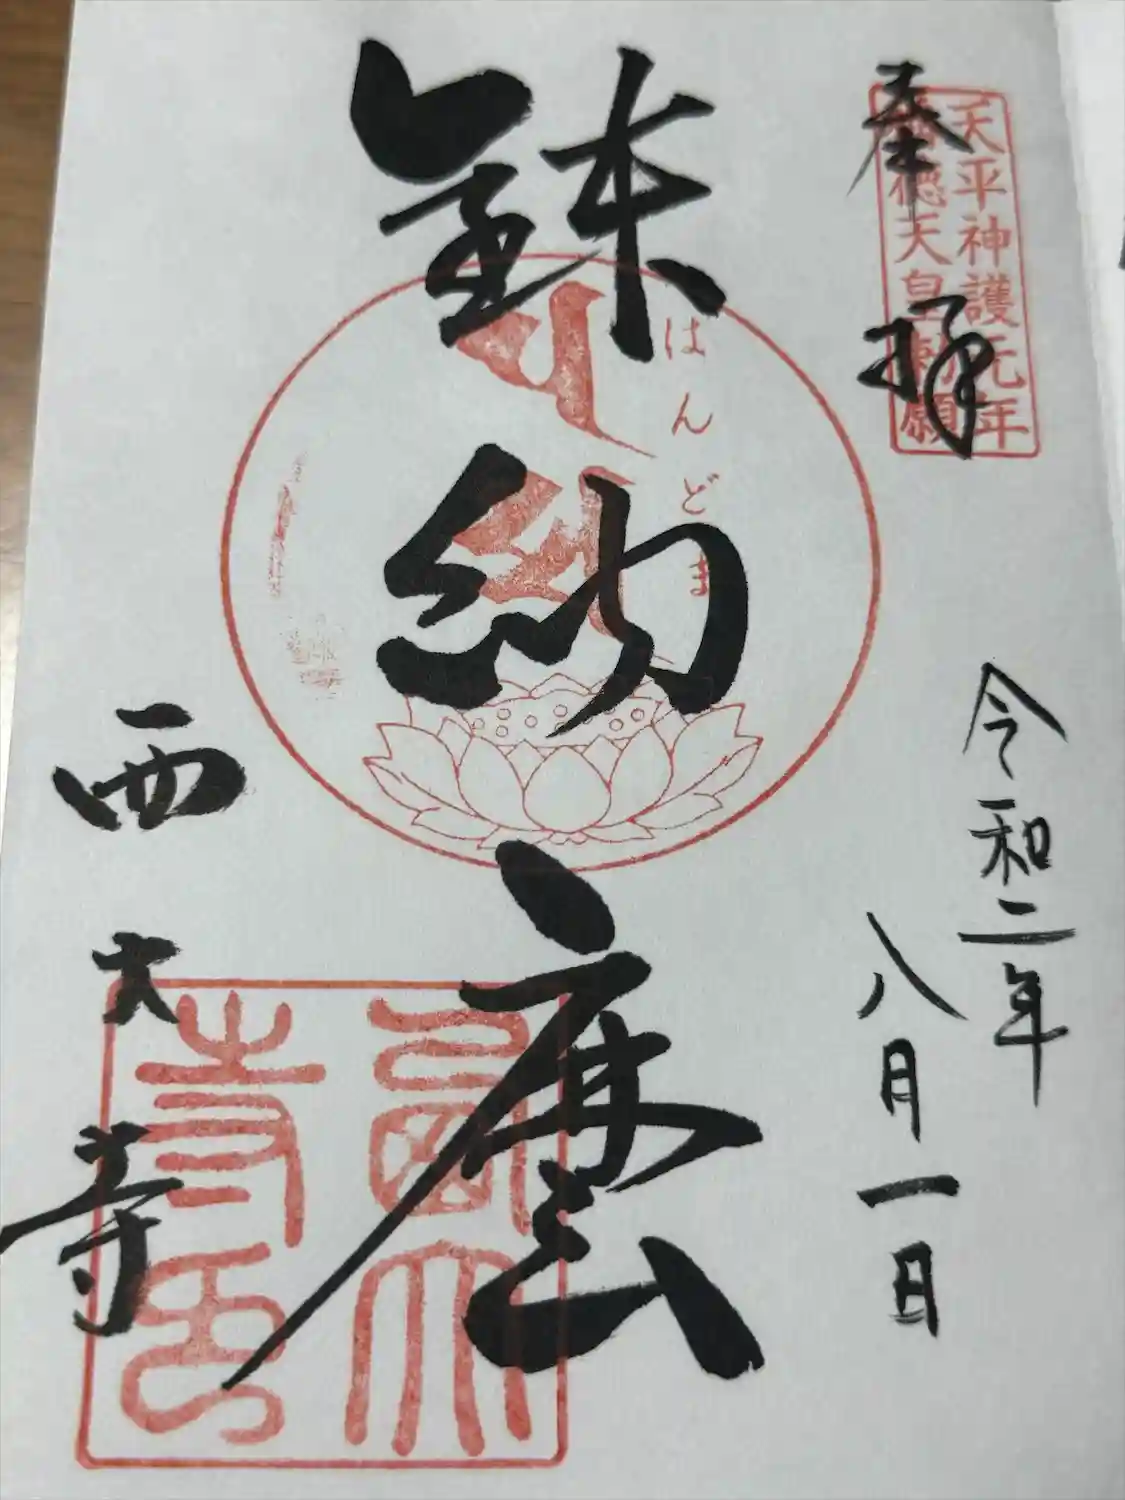 奉拝
天平神護元年
徳天皇勅願
令和二年
八月一日
鉢納麼
はんどま
西大寺
西大寺印